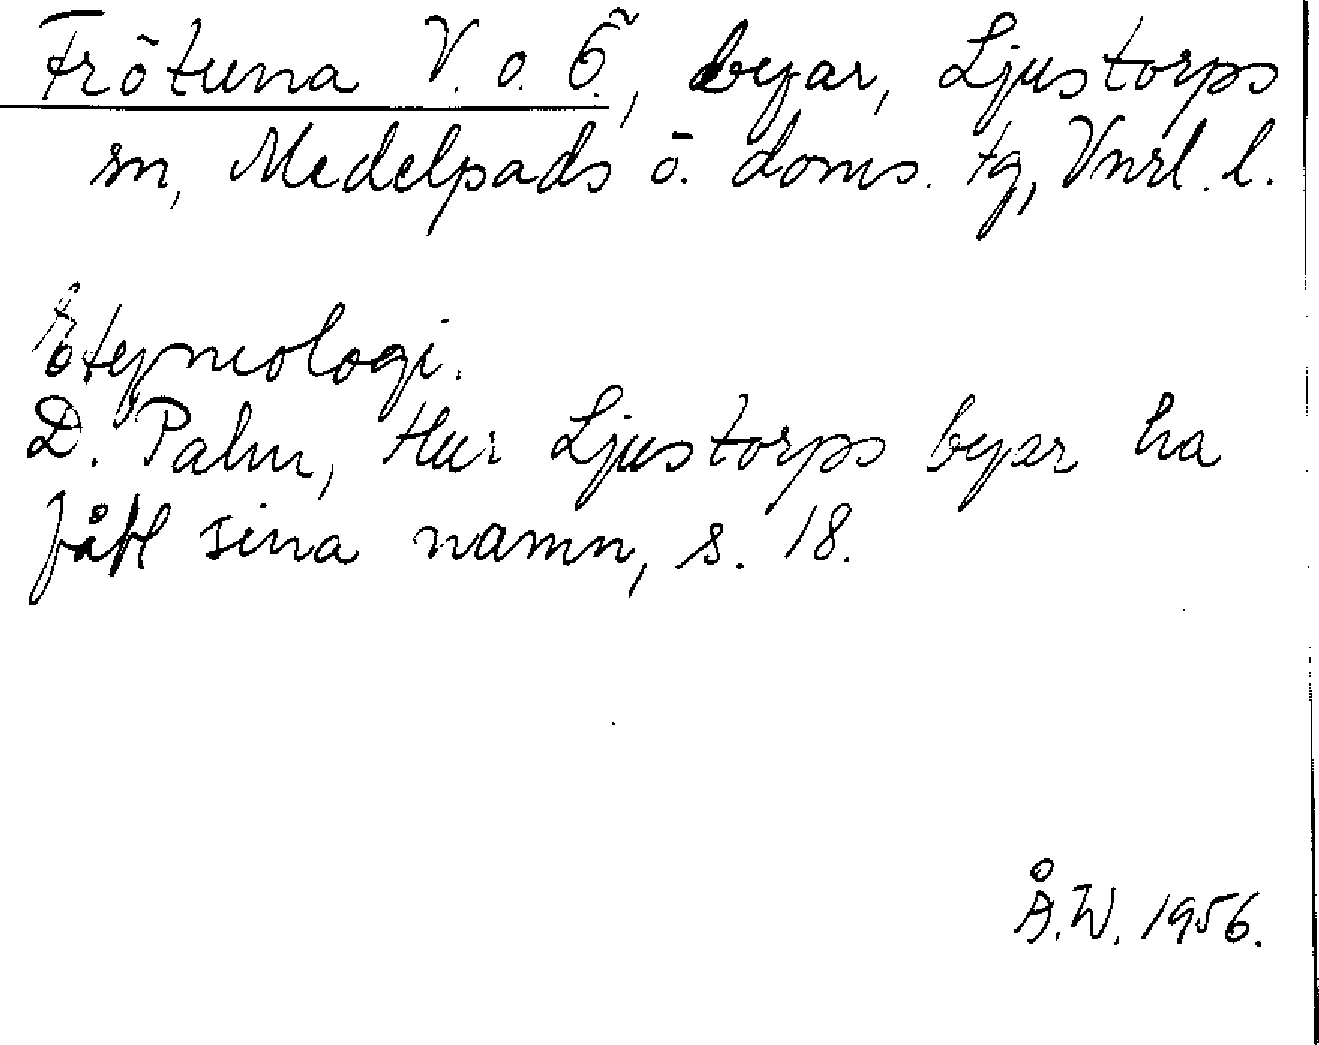 Frötuna V. o. Ö., byar, Ljustorps
sn, Medelpads ö. doms. tg, Vnrl. l.
Etymologi.
D. Palm, Hur Ljustorps byar ha
fått sina namn, s. 18.
Å.W. 1956.